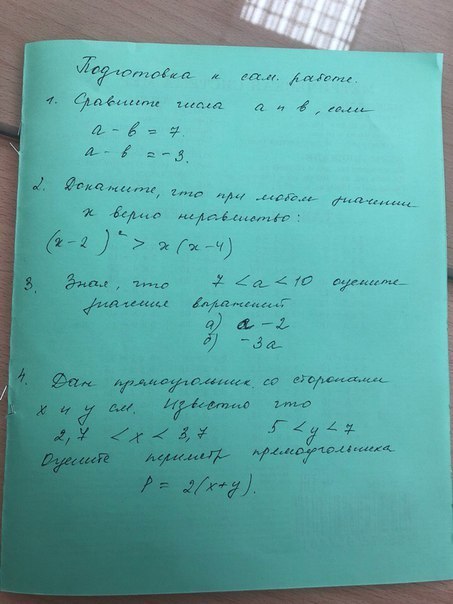 Подготовка к сам. работе.
1. Сравните числа а и в, если
а - в = 7.
а - в = -3.
2. Докажите, что при любом значении
х верно неравенство:
(х-2)² > х(х-4)
3. Зная, что 7 < а < 10 оцените
значение выражений
а) а - 2
б) -3а
4. Дан прямоугольник со сторонами
х и у см. Известно что
2,7 < х < 3,7 5 < у < 7
Оцените периметр прямоугольника
Р = 2(х+у).